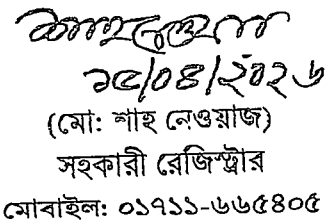 (মো: শাহ নেওয়াজ)
সহকারী রেজিস্ট্রার
মোবাইল: ০১৭১১-৬৬৫৪০৫